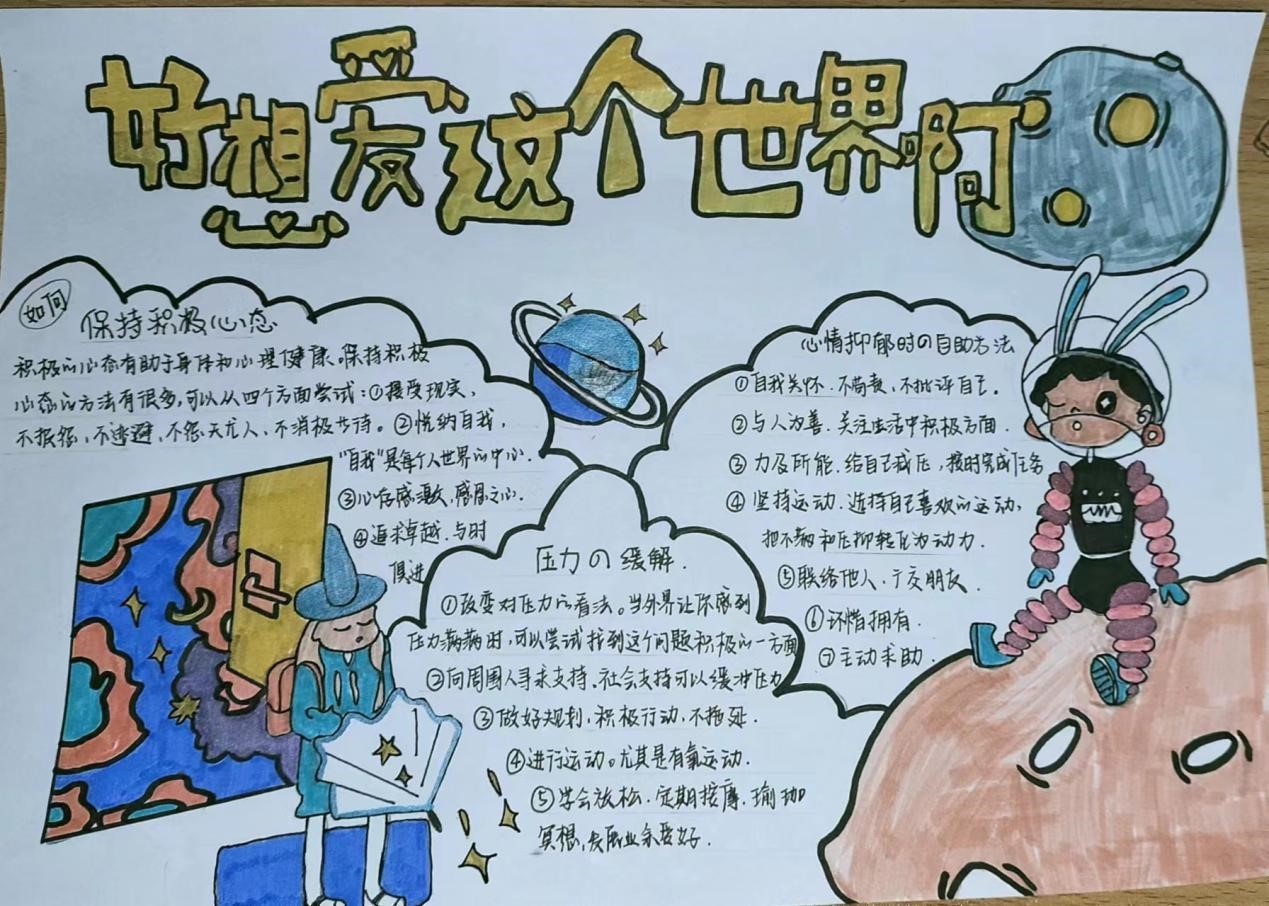 好想爱这个世界啊
如何
保持积极心态
积极的心态有助于身体和心理健康。保持积极
心态的方法有很多,可以从四个方面尝试:①接受现实,
不抱怨、不逃避、不怨天尤人、不消极等待。②悦纳自我,
"自我"是每个人世界的中心.
③心怀感激,感恩之心.
④追求卓越.与时
俱进
压力の缓解.
①改变对压力的看法。当外界让你感到
压力满满时,可以尝试找到这个问题积极的一方面
②向周围人寻求支持、社会支持可以缓冲压力
③做好规划,积极行动,不拖延.
④进行运动。尤其是有氧运动.
⑤学会放松.定期按摩.瑜珈
冥想,发展业余爱好.
心情抑郁时の自助方法
①自我关怀.不苛责,不批评自己.
②与人为善.关注生活中积极方面.
③力及所能.给自己减压,按时完成任务
④坚持运动.选择自己喜欢的运动,
把不满和压抑转化为动力.
⑤联络他人.广交朋友.
⑥珍惜拥有.
⑦主动求助.